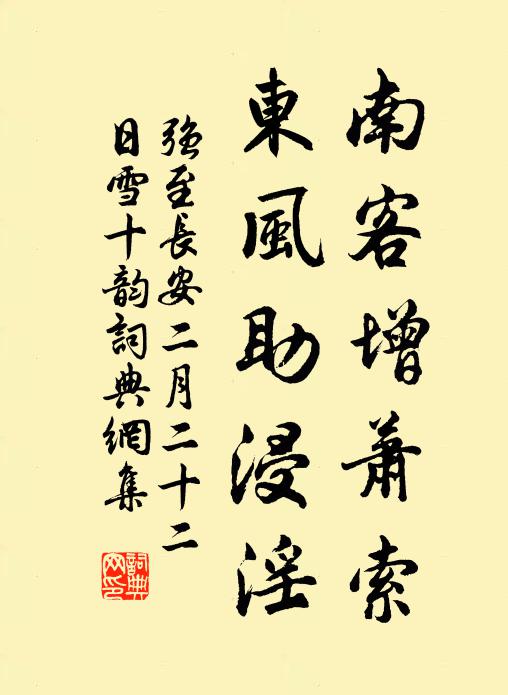 南客增蕭索
東風助浸淫
強至長安二月二十二
日雪十韵詞典網集
詞典
网印